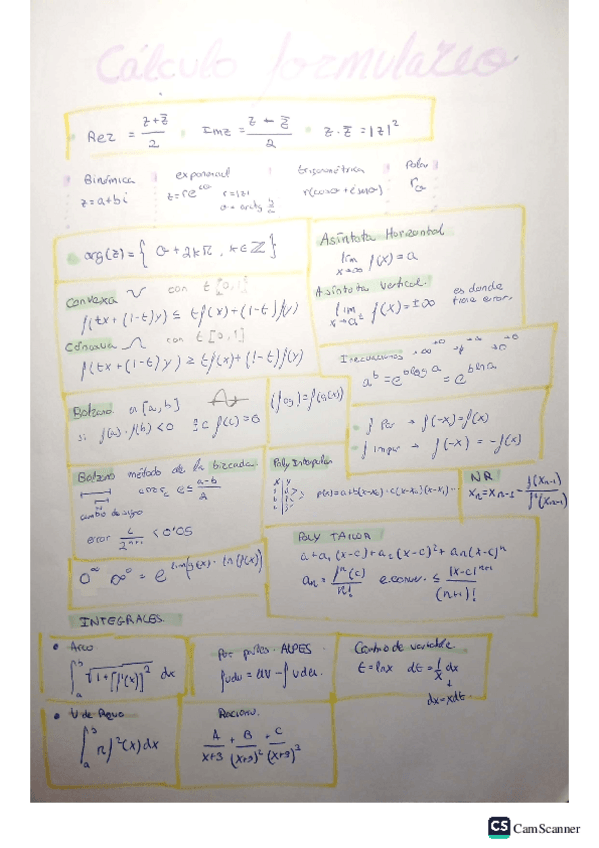 Cálculo formulareo
Rez = z+z̄/2 Imz = z-z̄/2 z·z̄ = |z|²
Binómica exponencial trigonométrica Polar
z=a+bi r=|z| r(cosα+isenα) rα
arg(z) = { α+2kπ, k∈ℤ }
Asíntota Horizontal
lim x→∞ f(x)=a
Asíntota vertical.
lim x→a± f(x)=±∞ es donde
tiene error.
Convexa con t[0,1]
f(tx+(1-t)y) ≤ tf(x)+(1-t)f(y)
Cóncava con t[0,1]
f(tx+(1-t)y) ≥ tf(x)+(1-t)f(y)
a^b = e^{b log a} = e^{b ln a}
Bolzano en [a,b]
si f(a)·f(b)<0 ∃c f(c)=0
(f∘g)=f(g(x))
f Par → f(-x)=f(x)
f impar → f(-x) = -f(x)
Bolzano método de la bisección.
a-b/2
cambio de signo
error L/2ⁿ⁺¹ < 0'05
Poly Interpolar
x y
p(x)=a+b(x-x₀)+c(x-x₀)(x-x₁)...
NR
xₙ=xₙ₋₁ - f(xₙ₋₁)/f'(xₙ₋₁)
0^∞ ∞^0 = e^{lim g(x)·ln(f(x))}
POLY TAILOR
a+a₁(x-c)+a₂(x-c)²+aₙ(x-c)ⁿ
aₙ= fⁿ(c)/n! ≤ |x-c|ⁿ⁺¹/(n+1)!
INTEGRALES.
• Arco
∫ₐᵇ √1+[f'(x)]² dx
Por partes. ALPES.
∫udv = uv - ∫vdu.
Cambio de variable.
t=lnx dt=1/x dx
↓
dx=xdt.
• V de Revo
∫ₐᵇ π f²(x)dx
Racional.
A/x+3 + B/(x+3)² + C/(x+3)³
CS CamScanner